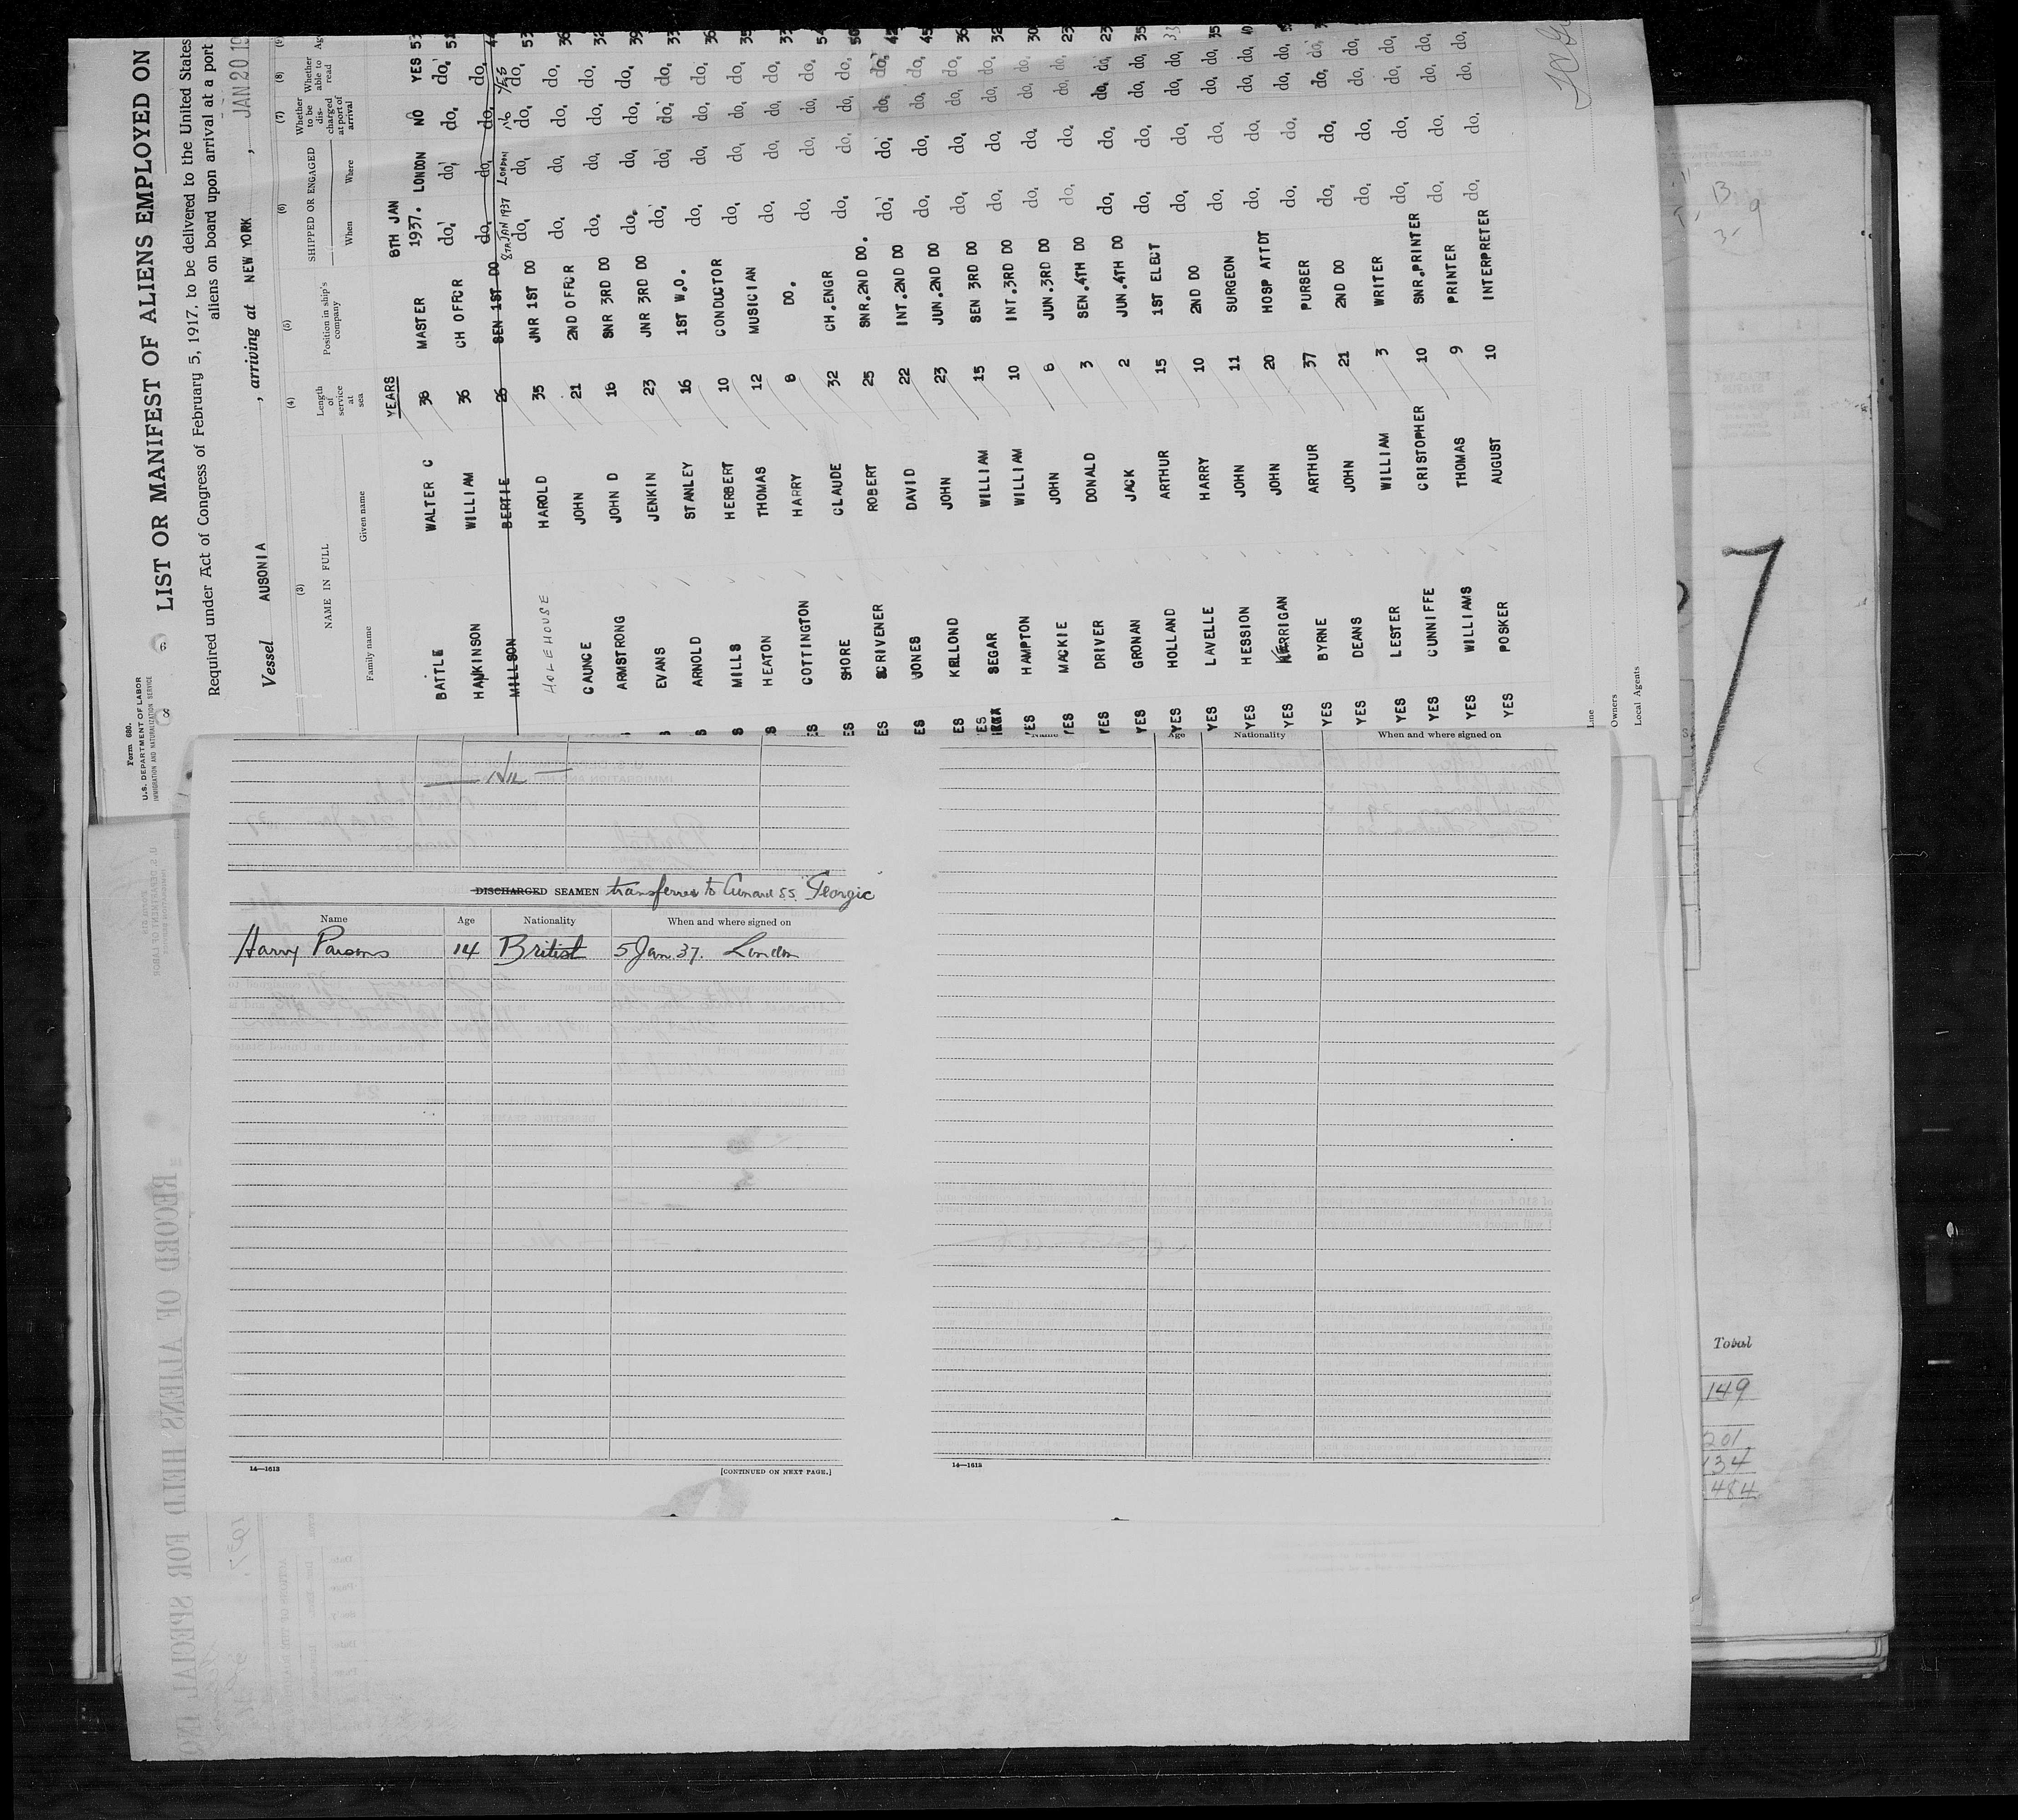 Form 680.
U.S. DEPARTMENT OF LABOR
IMMIGRATION AND NATURALIZATION SERVICE
LIST OR MANIFEST OF ALIENS EMPLOYED ON
Required under Act of Congress of February 5, 1917, to be delivered to the United States
aliens on board upon arrival at a port
Vessel AUSONIA , arriving at NEW YORK , JAN 20 19
(3) (4) (5) (6) (7) (8) (9)
NAME IN FULL Length of service at sea Position in ship's company SHIPPED OR ENGAGED Whether to be discharged at port of arrival Whether able to read Ag
Family name Given name When Where
YEARS 8TH JAN
BATTLE WALTER C 36 MASTER 1937. LONDON NO YES 53
HANKINSON WILLIAM 36 CH OFFCR do. do. do. do. 51
MILLSON BERTIE 26 SEN 1ST DO do. do. do. do.
HOLEHOUSE HAROLD 35 JNR 1ST DO 8TH JAN 1937 LONDON NO YES do. do. do. do. 53
CAUNCE JOHN 21 2ND OFFCR do. do. do. do. 36
ARMSTRONG JOHN D 16 SNR 3RD DO do. do. do. do. 32
EVANS JENKIN 23 JNR 3RD DO do. do. do. do. 39
ARNOLD STANLEY 16 1ST W.O. do. do. do. do. 33
S MILLS HERBERT 10 CONDUCTOR do. do. do. do. 36
S HEATON THOMAS 12 MUSICIAN do. do. do. do. 35
ES COTTINGTON HARRY 8 DO. do. do. do. do. 33
ES SHORE CLAUDE 32 CH.ENGR do. do. do. do. 54
ES SCRIVENER ROBERT 25 SNR.2ND DO. do. do. do. do. 50
ES JONES DAVID 22 INT.2ND DO do. do. do. do.
ES KELLOND JOHN 23 JUN.2ND DO do. do. do. do. 45
ES SEGAR WILLIAM 15 SEN 3RD DO do. do. do. do. 36
YES HAMPTON WILLIAM 10 INT.3RD DO do. do. do. do. 32
YES MACKIE JOHN 6 JUN.3RD DO do. do. do. do. 30
YES DRIVER DONALD 3 SEN.4TH DO do. do. do. do. 23
YES GRONAN JACK 2 JUN.4TH DO do. do. do. do. 23
YES HOLLAND ARTHUR 15 1ST ELECT do. do. do. do. 35
YES LAVELLE HARRY 10 2ND DO do. do. do. do. 33
YES HESSION JOHN 11 SURGEON do. do. do. do. 35
YES KERRIGAN JOHN 20 HOSP ATTDT do. do. do. do. 40
YES BYRNE ARTHUR 37 PURSER do. do. do. do.
YES DEANS JOHN 21 2ND DO do. do. do. do.
YES LESTER WILLIAM 3 WRITER do. do. do. do.
YES CUNNIFFE CRISTOPHER 10 SNR.PRINTER do. do. do. do.
YES WILLIAMS THOMAS 9 PRINTER do. do. do. do.
YES POSKER AUGUST 10 INTERPRETER do. do. do. do.
Line
Owners
Local Agents
Nil
DISCHARGED SEAMEN transferred to Cunard S.S. "Georgic"
Name Age Nationality When and where signed on
Harry Parsons 14 British 5 Jan. 37. London
14—1613 [CONTINUED ON NEXT PAGE.]
Name Age Nationality When and where signed on
14—1613
RECORD OF ALIENS HELD FOR SPECIAL INQ
7
Total
149
201
134
484